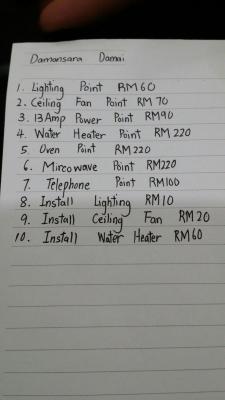 Damansara Damai
1. Lighting Point RM60
2. Ceiling Fan Point RM 70
3. 13Amp Power Point RM90
4. Water Heater Point RM 220
5. Oven Point RM 220
6. Mircowave Point RM220
7. Telephone Point RM100
8. Install Lighting RM10
9. Install Ceiling Fan RM 20
10. Install Water Heater RM60